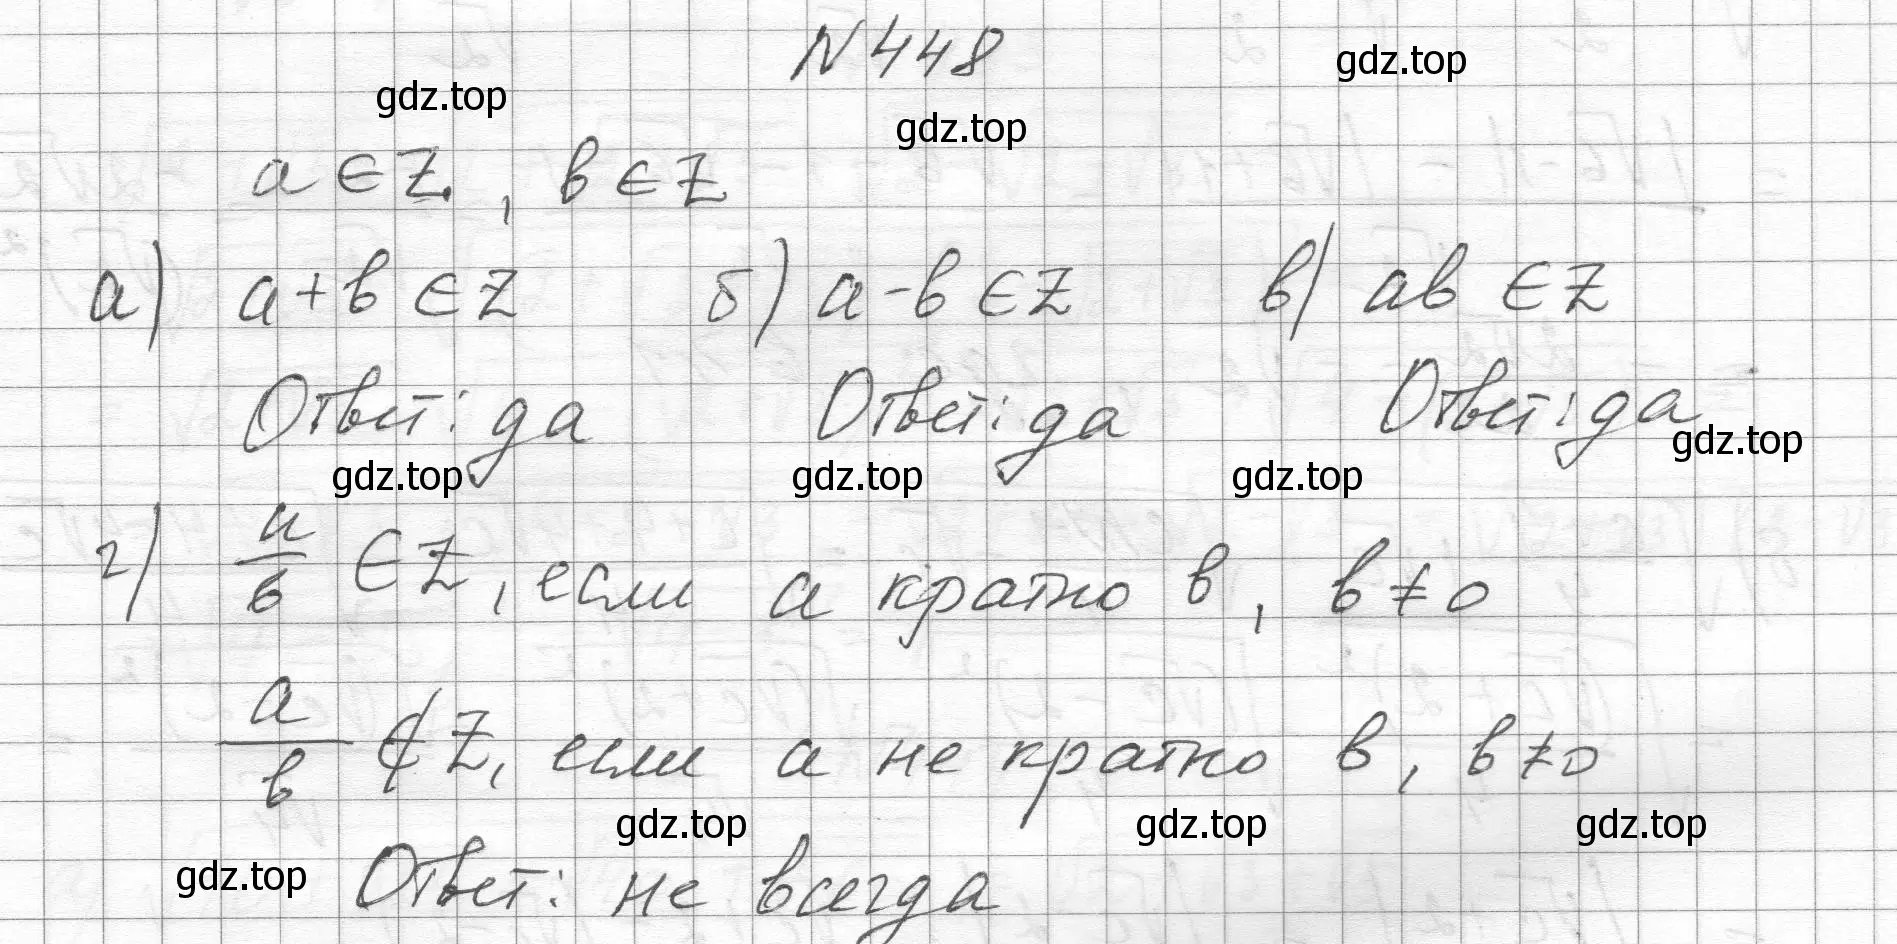 N 448
gdz.top
gdz.top
gdz.top
a ∈ Z, b ∈ Z
а) a+b ∈ Z б) a-b ∈ Z в) ab ∈ Z
Ответ: да Ответ: да Ответ: да
gdz.top gdz.top gdz.top gdz.top
г) a/b ∈ Z, если a кратно b, b≠0
a/b ∉ Z, если a не кратно b, b≠0
gdz.top gdz.top gdz.top
gdz.top Ответ: не всегда